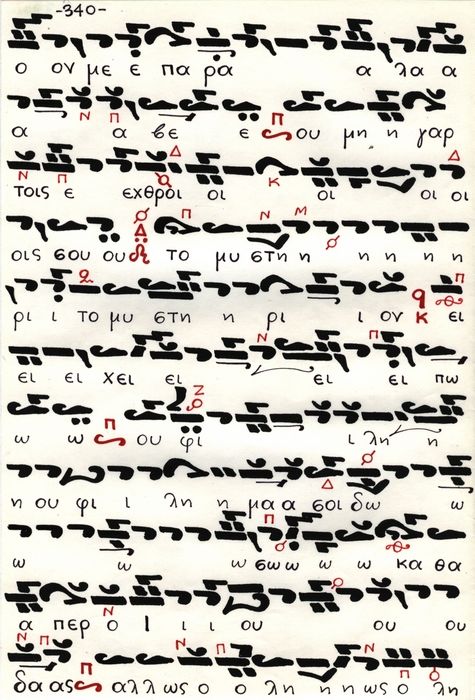 -340-
ο ον με ε πα ρα α λα α
α α βε ε ου μη η γαρ
τοις ε εχθροι οι οι οι οι
οις σου ου το μυ στη η η η η η
ρι ι το μυ στη η ρι ι ον ει
ει ει χει ει ει ει πω
ω ω ου φι ι λη η
η ου φι ι λη η μα α σοι δω ω
ω ω ω σω ω ω ω κα θα
α περ ο Ι ι ι ου ου ου
δα ας αλλ ως ο ο λη η η ως ο λη